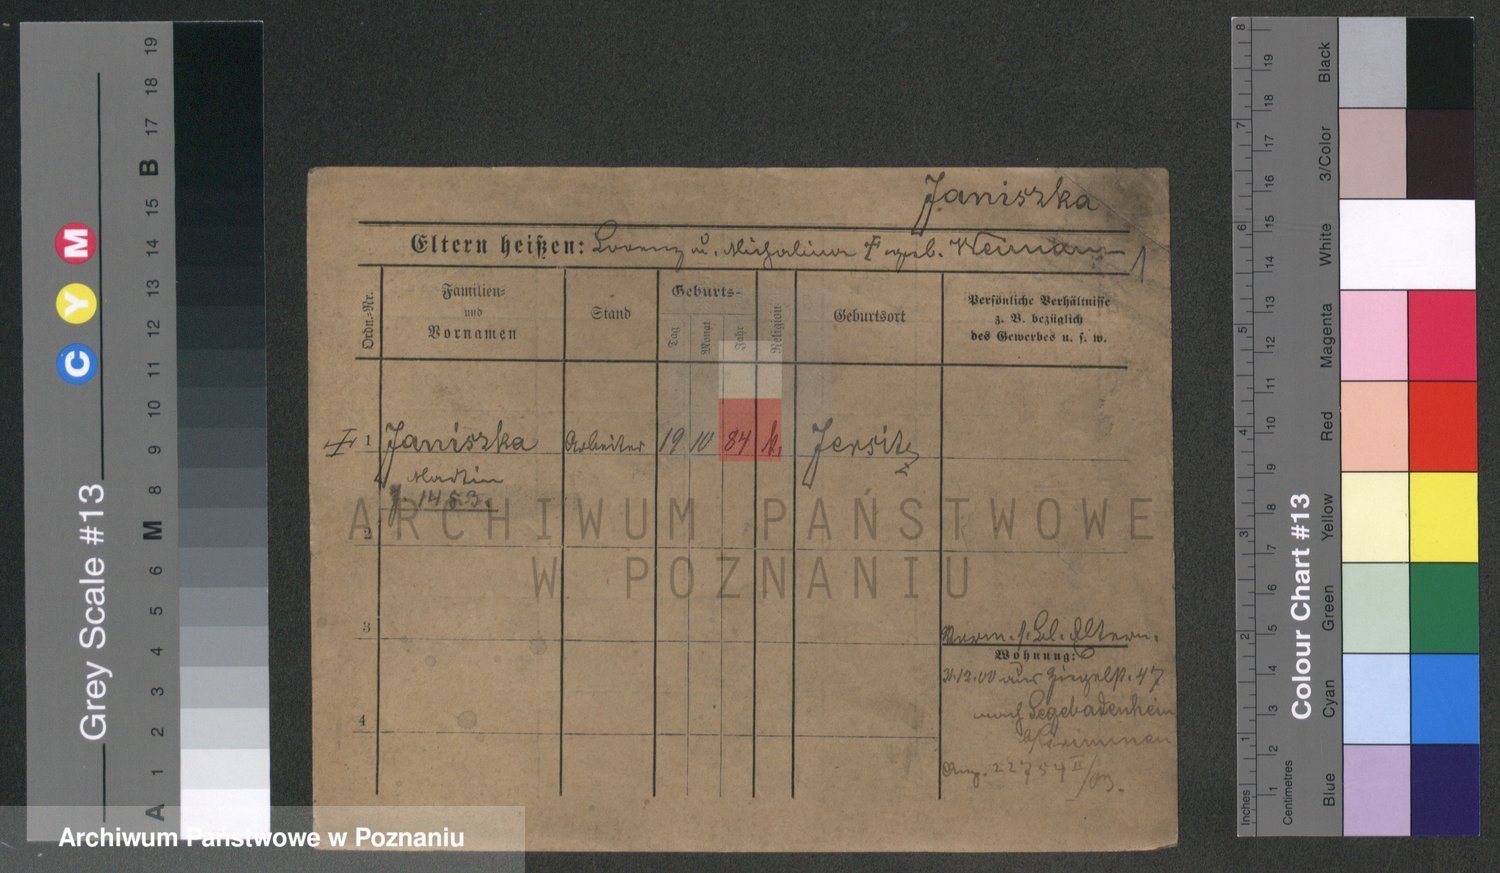 Janiszka
Eltern heißen: Lorenz u. Michalina geb. Weimann
Ordn.=Nr.
Familien=
und
Vornamen
Stand
Geburts=
Tag
Monat
Jahr
Religion
Geburtsort
Persönliche Verhältnisse
z. B. bezüglich
des Gewerbes u. s. w.
1 Janiszka Arbeiter 19 10 84 k. Jersitz
Martin
J. 1453.
2
3
4
Wohnung:
aus Ziegelstr. 47
nach
Ang. 22754 II/03.
ARCHIWUM PAŃSTWOWE
W POZNANIU
Archiwum Państwowe w Poznaniu
Grey Scale #13
C Y M
A 1 2 3 4 5 6 M 8 9 10 11 12 13 14 15 B 17 18 19
Colour Chart #13
Blue Cyan Green Yellow Red Magenta White 3/Color Black
Inches 1 2 3 4 5 6 7 8
Centimetres 1 2 3 4 5 6 7 8 9 10 11 12 13 14 15 16 17 18 19